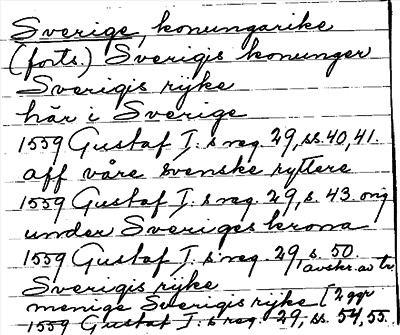 Sverige, konungarike
(forts.) Sverigis konunger
Sverigis rijke
här i Sverige
1559 Gustaf I:s reg. 29, ss. 40, 41.
aff våre svenske ryttere
1559 Gustaf I:s reg. 29, s. 43. orig
under Sveriges krona
1559 Gustaf I:s reg. 29, s. 50.
avskr. av tr.
Sverigis rijke
menige Sverigis rijke [2 ggr
1559 Gustaf I:s reg. 29, ss. 54, 55.